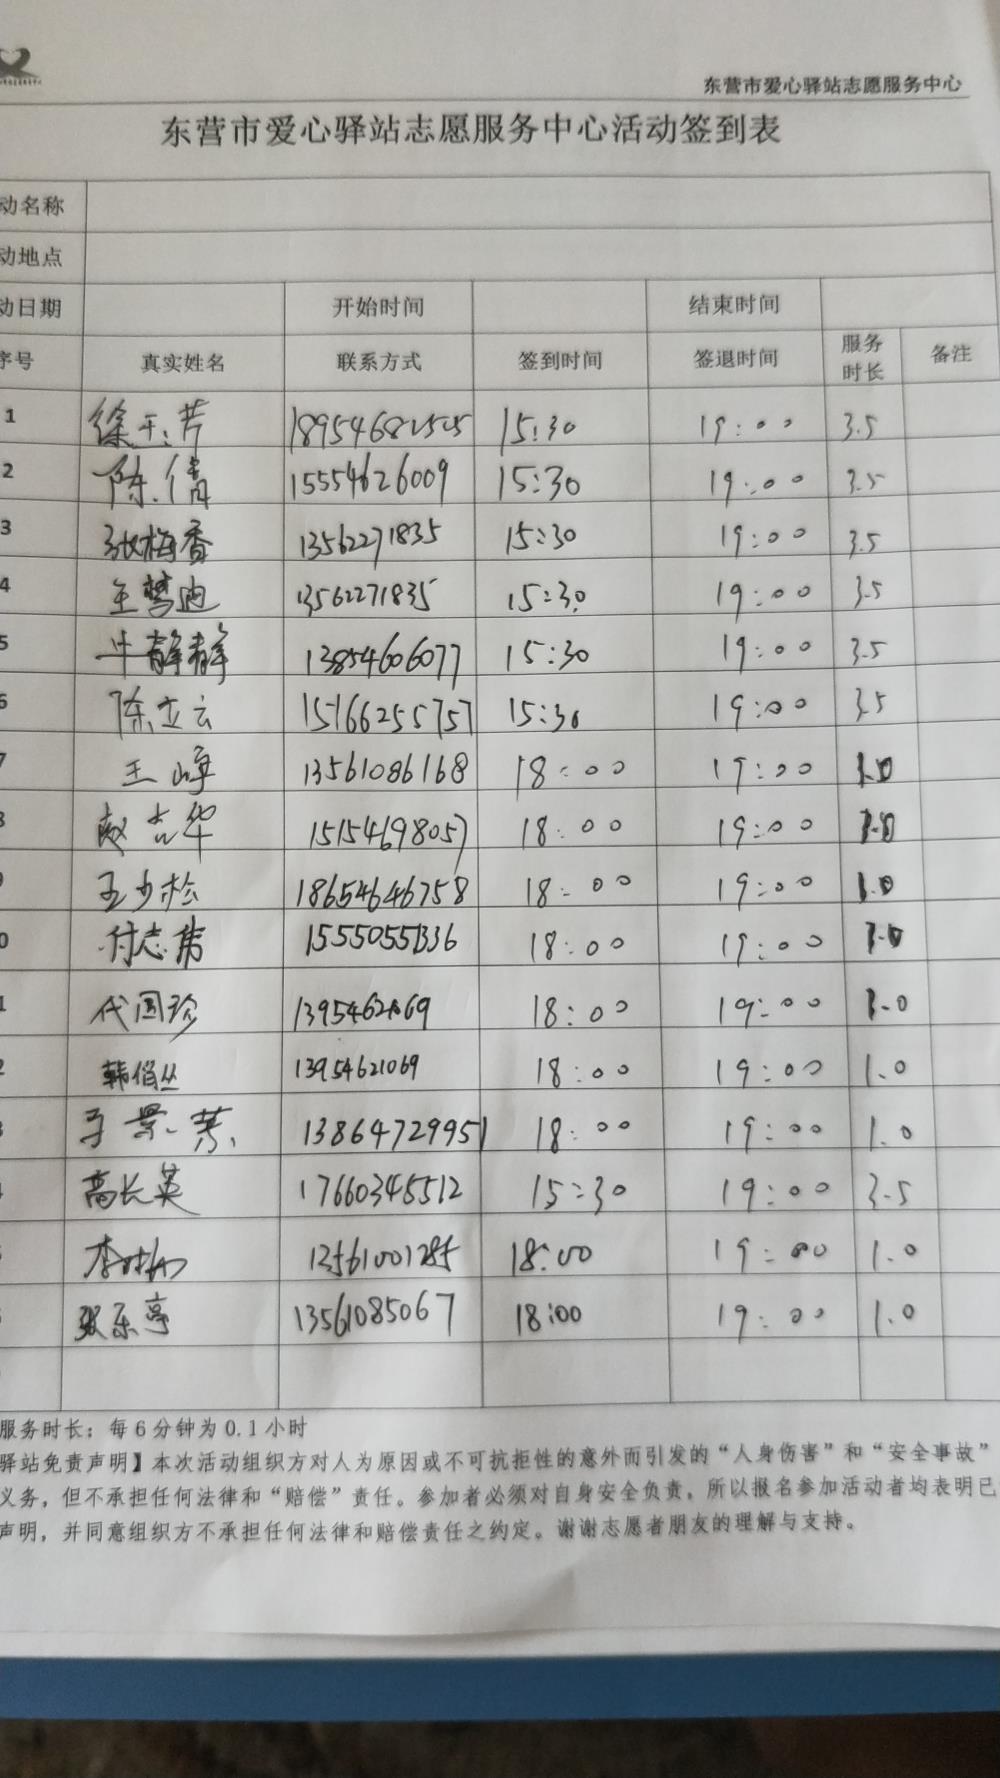 东营市爱心驿站志愿服务中心
东营市爱心驿站志愿服务中心活动签到表
动名称
动地点
动日期 开始时间 结束时间
序号 真实姓名 联系方式 签到时间 签退时间 服务时长 备注
1 徐 芹 15:30 19:00 3.5
2 陈倩 15554626009 15:30 19:00 3.5
3 张梅香 13562271835 15:30 19:00 3.5
4 王梦迪 13562271835 15:30 19:00 3.5
5 牛静静 13854606077 15:30 19:00 3.5
6 陈立云 15166255757 15:30 19:00 3.5
7 王峰 13561086168 18:00 19:00 1.0
8 赵吉华 15154698057 18:00 19:00 1.0
9 王少松 18654646758 18:00 19:00 1.0
0 付志伟 15550551336 18:00 19:00 1.0
1 代国珍 18:00 19:00 1.0
2 韩俏丛 13954621069 18:00 19:00 1.0
3 景 13864729951 18:00 19:00 1.0
4 高长英 17660345512 15:30 19:00 3.5
李 13561001285 18:00 19:00 1.0
张乐亭 13561085067 18:00 19:00 1.0
服务时长：每6分钟为0.1小时
驿站免责声明】本次活动组织方对人为原因或不可抗拒性的意外而引发的“人身伤害”和“安全事故”
义务，但不承担任何法律和“赔偿”责任。参加者必须对自身安全负责，所以报名参加活动者均表明已
声明，并同意组织方不承担任何法律和赔偿责任之约定。谢谢志愿者朋友的理解与支持。